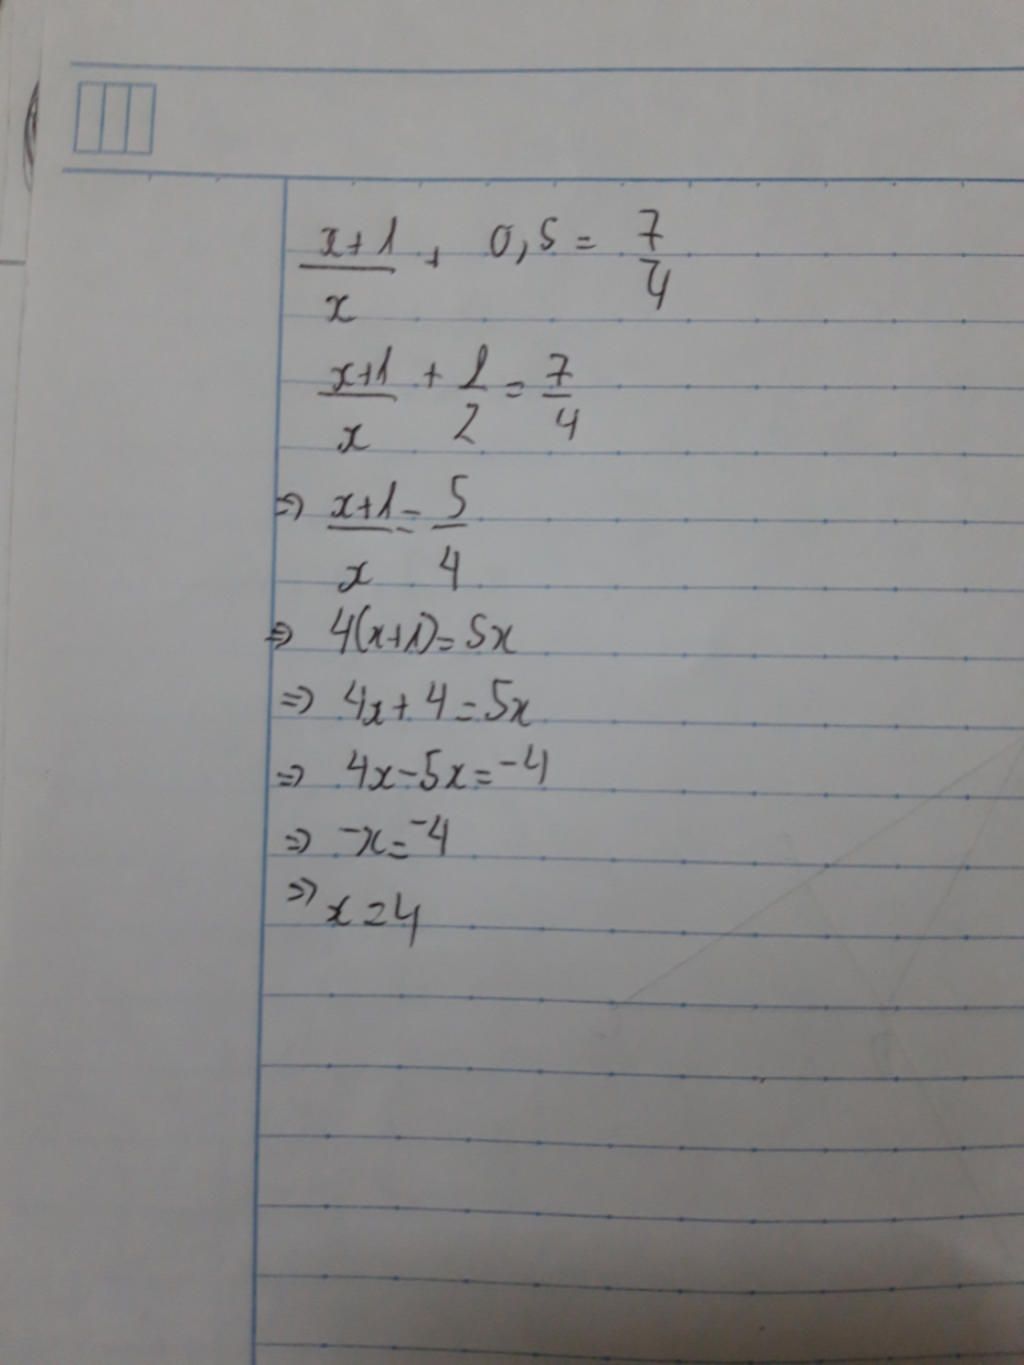 x+1/x + 0,5 = 7/4
x+1/x + 1/2 = 7/4
⇒ x+1/x = 5/4
⇒ 4(x+1) = 5x
⇒ 4x + 4 = 5x
⇒ 4x - 5x = -4
⇒ -x = -4
⇒ x = 4